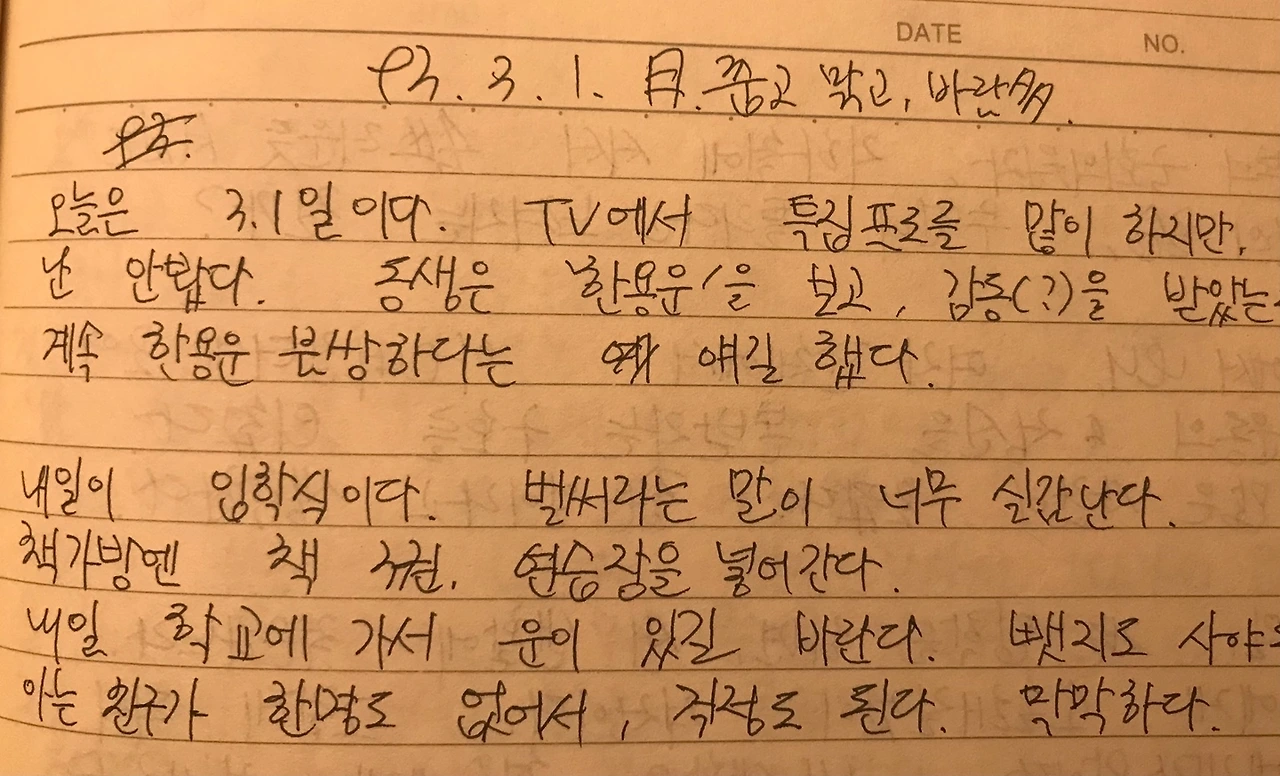 DATE
NO.
93. 3. 1. 月. 춥고 맑고, 바람多.
오늘은 3.1일이다. TV에서 특집프로를 많이 하지만,
난 안봤다. 동생은 '한용운'을 보고, 감동(?)을 받았는
계속 한용운 불쌍하다는 얘길 했다.
내일이 입학식이다. 벌써라는 말이 너무 실감난다.
책가방엔 책 두권, 연습장을 넣어간다.
내일 학교에 가서 운이 있길 바란다. 뺏지도 사야
아는 친구가 한명도 없어서, 걱정도 된다. 막막하다.